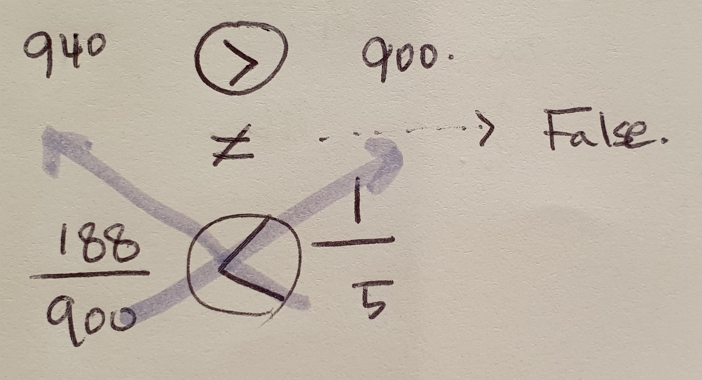 940 > 900.
≠ ------> False.
188/900 < 1/5